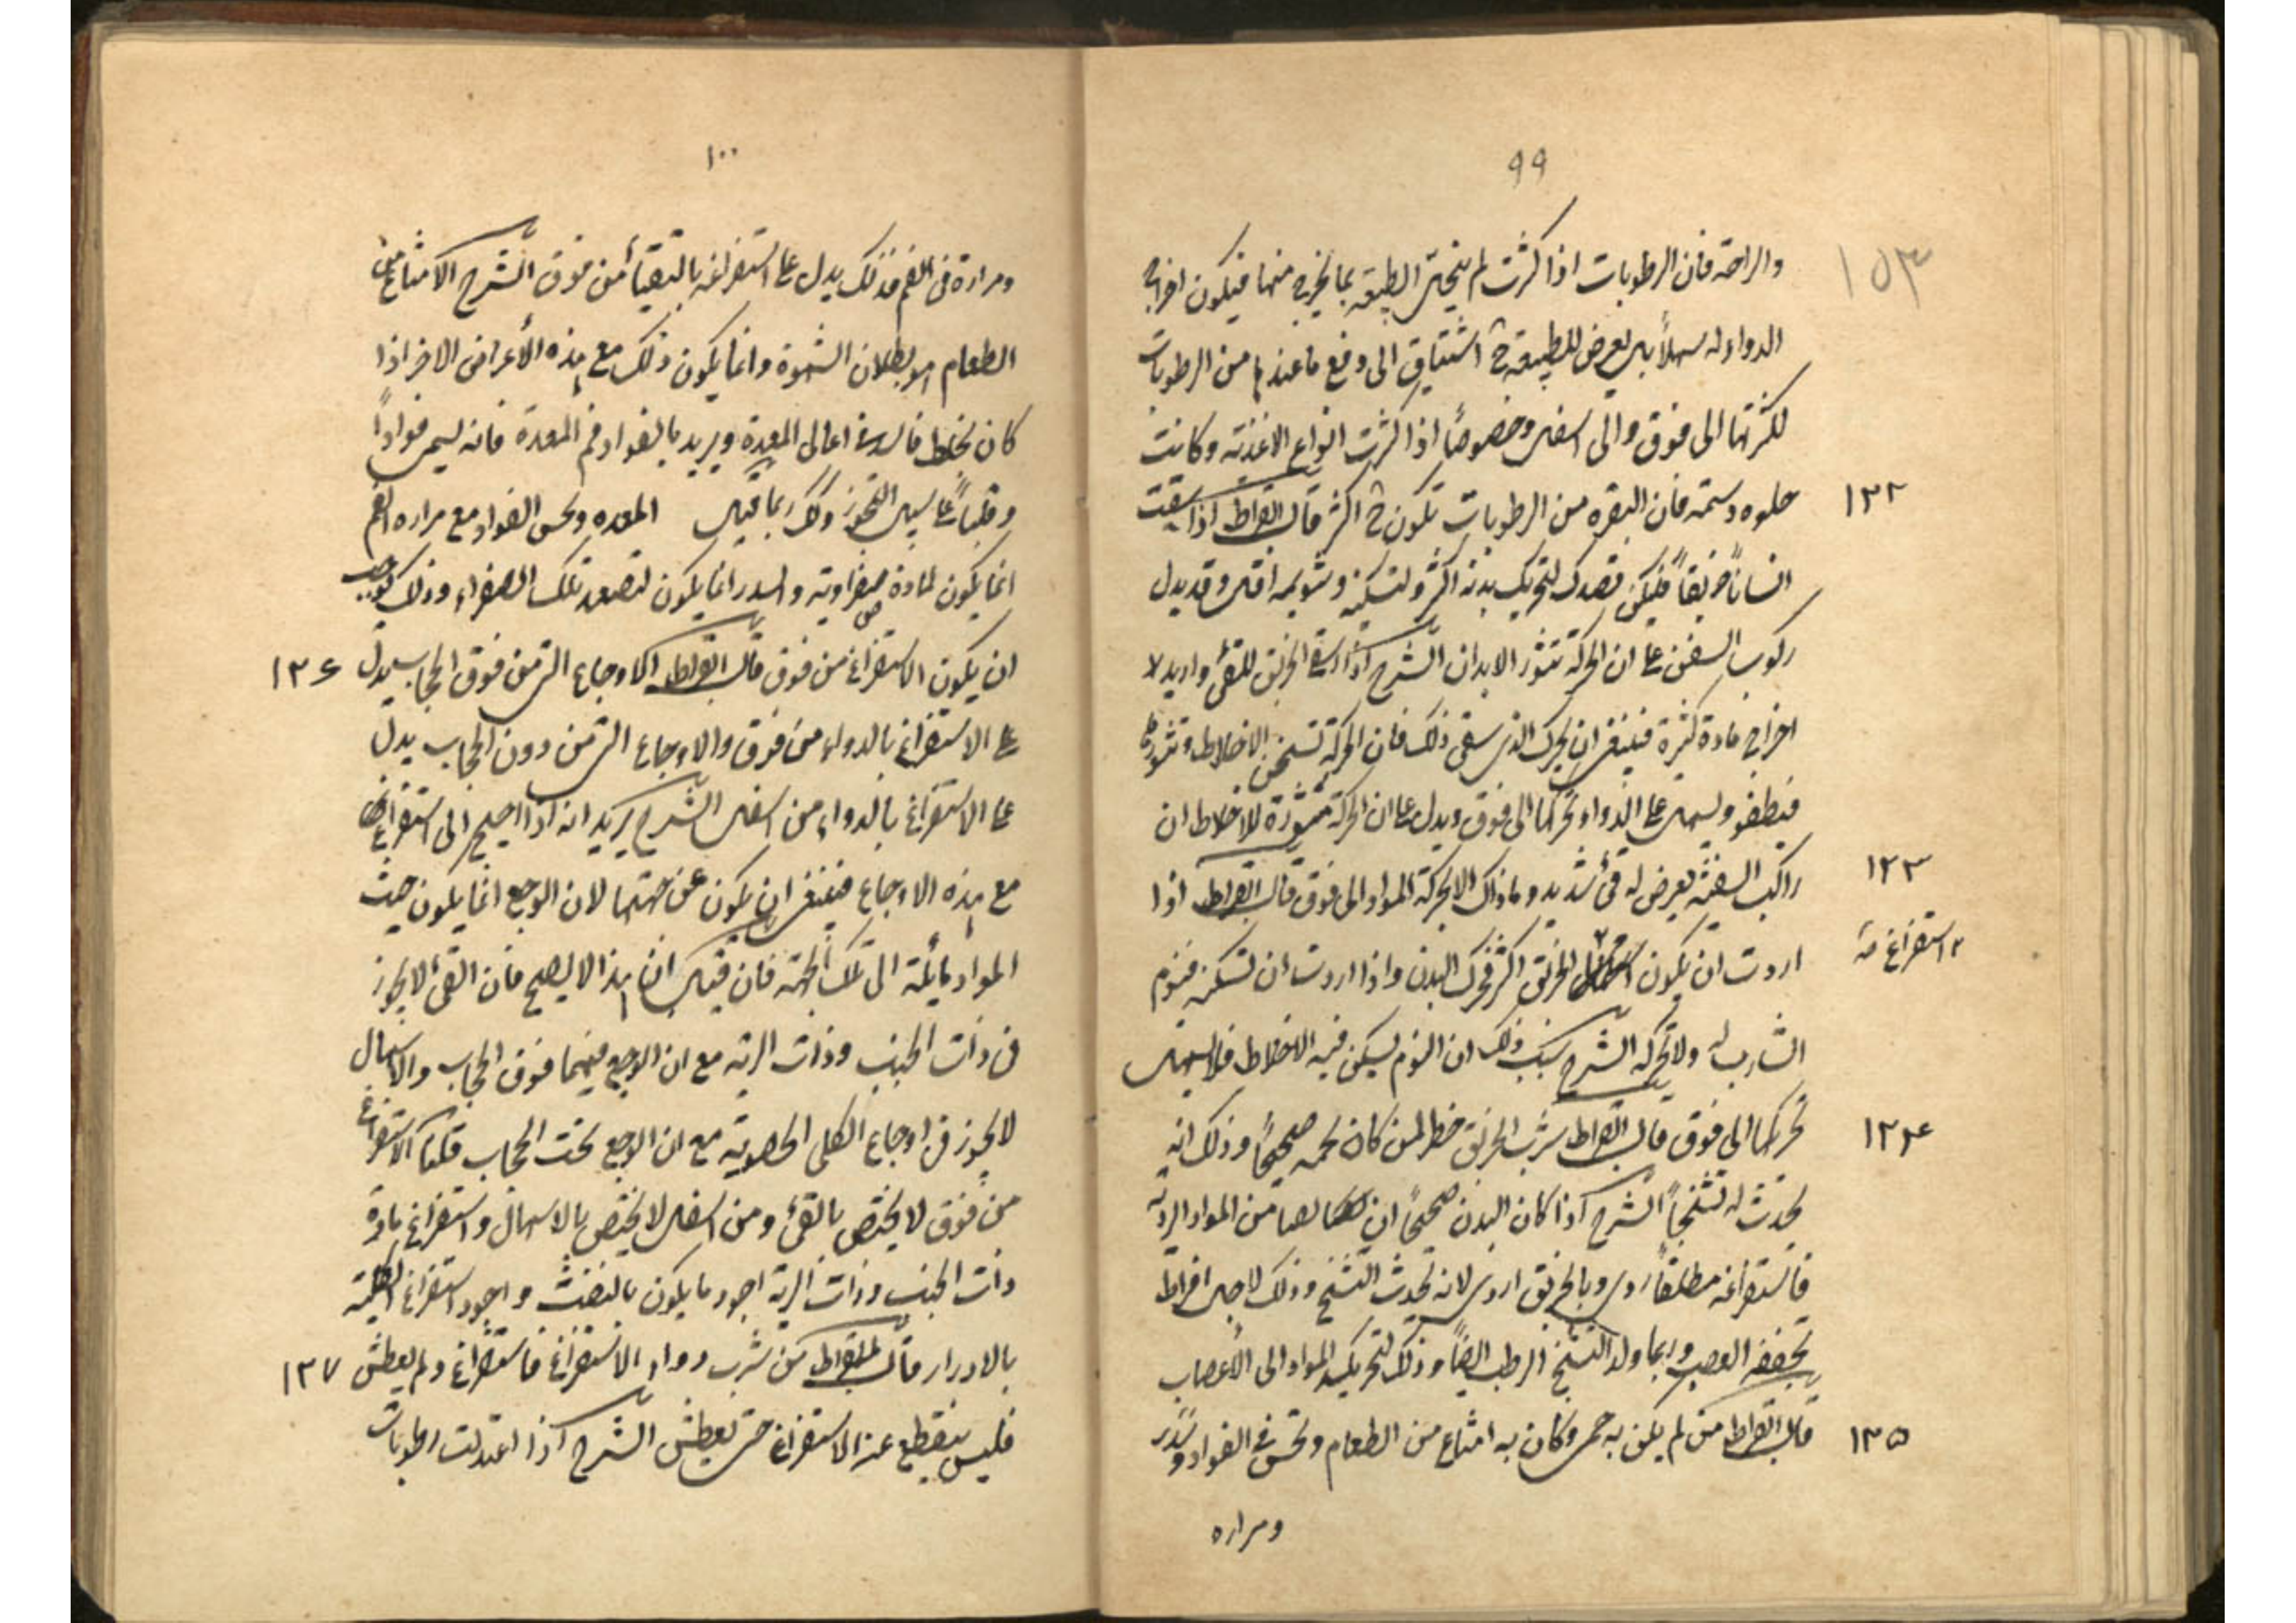 ٩٩
١٥٣
والراحة فان الرطوبات اذا كثرت لم تبخل الطبيعة بما يخرج منها فيكون اخراج
الدواء له سهلاً بل يعرض للطبيعة ح اشتياق الى دفع ما عندها من الرطوبات
لكثرتها الى فوق والى اسفل وخصوصاً اذا كثرت انواع الاغذية وكانت
حلوه دسمة فان البقره من الرطوبات تكون ح اكثر قال ابقراط اذا سقيت
١٣٢
انساناً خربقاً فليكن قصدك لتحريك بدنه اكثر ولتسكينه وتنويمه اقل وقد يدل
ركوب السفن على ان الحركة تثور الابدان الشرح اذا سقى الخربق للقئ واريد لا
اخراج مادة كثيرة فينبغى ان يحرك الذى سقى ذلك فان الحركة تسخن الاخلاط وتثورها
فيطفو ويسهل على الدواء تحركها الى فوق ويدل على ان الحركة مثورة للاخلاط ان
راكب السفينة يعرض له قئ شديد وما ذاك الا لحركة المواد الى فوق قال ابقراط اذا
١٣٣
اردت ان يكون الخربق اكثر فحرك البدن واذا اردت ان تسكنه فنوم
٢ استفراغ صـ
الشارب له ولا تحركه الشرح سبب ذلك ان النوم يسكن فيه الاخلاط فلا يسهل
تحركها الى فوق قال ابقراط شرب الخربق خطر لمن كان لحمه صحيحاً وذلك انه
١٣٤
يحدث له تشنجاً الشرح اذا كان البدن صحيحاً اى خالصا من المواد الردية
فاستفراغه مطلقاً ردى وبالخربق اردى لانه يحدث التشنج وذلك لاجل افراط
تجفيفه العصب وربما ولد التشنج الرطب ايضاً وذلك لتحريك المواد الى الأعصاب
قال ابقراط من لم يكن به حمى وكان به امتناع من الطعام ونخس فى الفواد وسدر
١٣٥
ومراره
١٠٠
ومرارة فى الفم فذلك يدل على استفراغه بالتقيأ من فوق الشرح الامتناع من
الطعام هو بطلان الشهوة وانما يكون ذلك مع هذه الأعراض الاخر اذا
كان لخلط فاسد فى اعالى المعدة ويريد بالفواد فم المعدة فانه يسمى فواداً
وقلباً على سبيل التجوز وذلك ربما قيل المعده ونخس الفواد مع مراره الفم
انما يكون لمادة صفراوية والسدر انما يكون لتصعد تلك الصفراء وذلك يوجب
ان يكون الاستفراغ من فوق قال ابقراط الاوجاع التى من فوق الحجاب يدل
١٣٦
على الاستفراغ بالدواء من فوق والاوجاع التى من دون الحجاب يدل
على الاستفراغ بالدواء من اسفل الشرح يريد انه اذا احتيج الى استفراغ
مع هذه الاوجاع فينبغى ان يكون عن جهتها لان الوجع انما يكون حيث
المواد مائلة الى تلك الجهة فان قيل ان هذا لا يصح فان القئ لا يجوز
فى ذات الجنب وذات الرية مع ان الوجع فيهما فوق الحجاب والاسهال
لا يجوز فى اوجاع الكلى الحصوية مع ان الوجع تحت الحجاب قلنا الاستفراغ
من فوق لا يختص بالقئ ومن اسفل لا يختص بالاسهال واستفراغ مادة
ذات الجنب وذات الرية اجود ما يكون بالنفث واجود استفراغ الكلية
بالادرار قال ابقراط من شرب دواء الاستفراغ فاستفرغ ولم يعطش
١٣٧
فليس ينقطع عنه الاستفراغ حتى يعطش الشرح اذا اعتدلت رطوبات